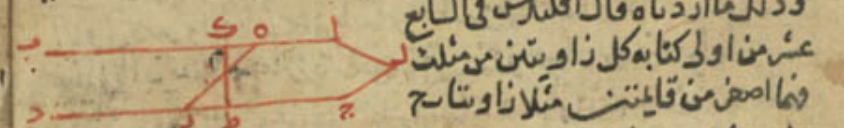 وذلك ما اردناه قال اقليدس في السابع
عشر من اولى كتابه كل زاويتين من مثلث
فهما اصغر من قايمتين مثلا زاويتا ح
ب
ا
د
ح